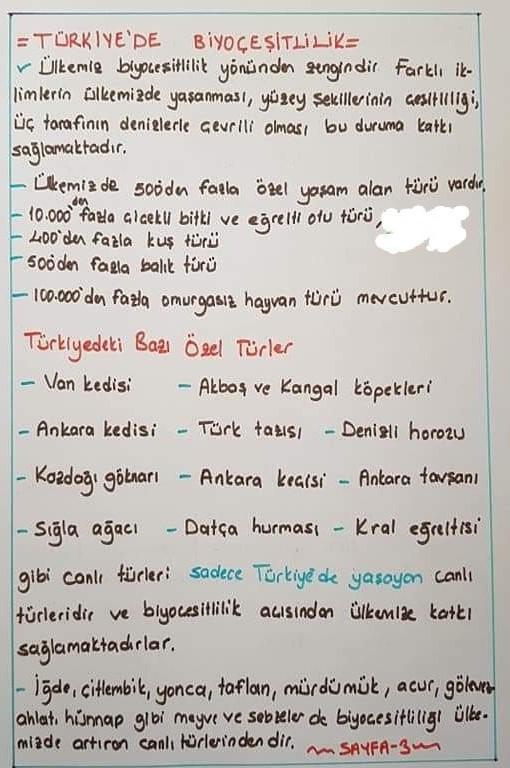 =TÜRKİYE'DE BİYOÇEŞİTLİLİK=
✓ Ülkemiz biyoçeşitlilik yönünden zengindir. Farklı ik-
limlerin ülkemizde yaşanması, yüzey şekillerinin çeşitliliği,
üç tarafının denizlerle çevrili olması bu duruma katkı
sağlamaktadır.
- Ülkemizde 500'den fazla özel yaşam alan türü vardır.
- 10.000'den fazla çiçekli bitki ve eğrelti otu türü,
- 400'den fazla kuş türü
- 500'den fazla balık türü
- 100.000'den fazla omurgasız hayvan türü mevcuttur.
Türkiyedeki Bazı Özel Türler
- Van kedisi - Akbaş ve Kangal köpekleri
- Ankara kedisi - Türk tazısı - Denizli horozu
- Kazdağı göknarı - Ankara keçisi - Ankara tavşanı
- Sığla ağacı - Datça hurması - Kral eğreltisi
gibi canlı türleri sadece Türkiye'de yaşayan canlı
türleridir ve biyoçeşitlilik açısından ülkemize katkı
sağlamaktadırlar.
- İğde, çitlembik, yonca, taflan, mürdümük, acur, gölevez
ahlat, hünnap gibi meyve ve sebzeler de biyoçeşitliliği ülke-
mizde artıran canlı türlerindendir. SAYFA-3